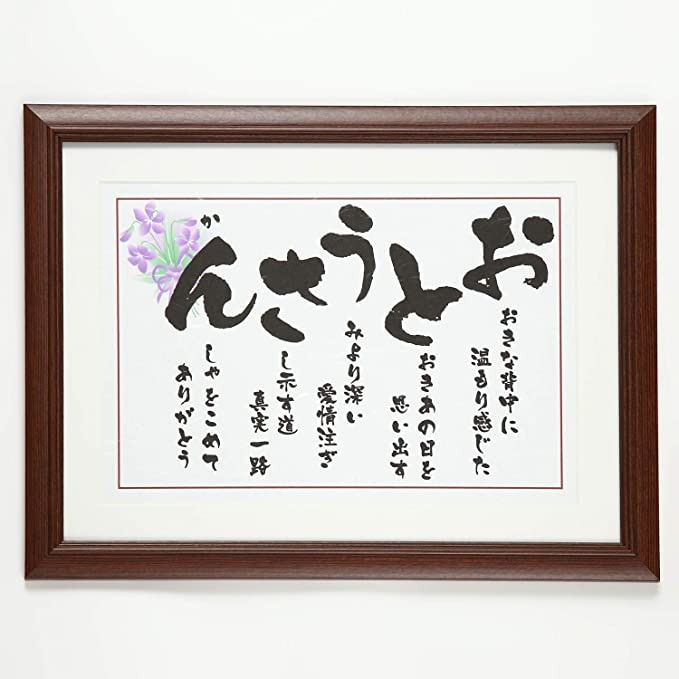 おとうさん
か
おきな背中に
温もり感じた
おきあの日を
思い出す
みより深い
愛情注ぎ
し示す道
真実一路
しゃをこめて
ありがとう